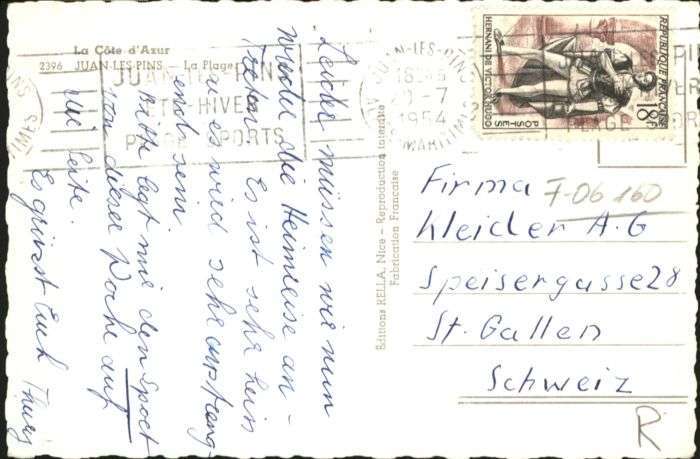 La Côte d'Azur
2396 JUAN-LES-PINS — La Plage
JUAN-LES-PINS
ÉTÉ-HIVER
PLAGE SPORTS
JUAN-LES-PINS
18H45
-7
1954
ALPES MARITIMES
RÉPUBLIQUE FRANÇAISE
HERNANI DE VICTOR HUGO
18F
POSTES
Leider müssen wir nun
wieder die Heimreise an-
treten. Es ist sehr heiss
u es wird sehr anstreng-
end sein.
Bitte legt mir den Sport
von dieser Woche auf
die Seite.
Es grüsst Euch
Editions RELLA, Nice — Reproduction interdite
Fabrication Française
Firma
F-06 160
Kleider A.G
Speisergasse 28
St. Gallen
Schweiz
R